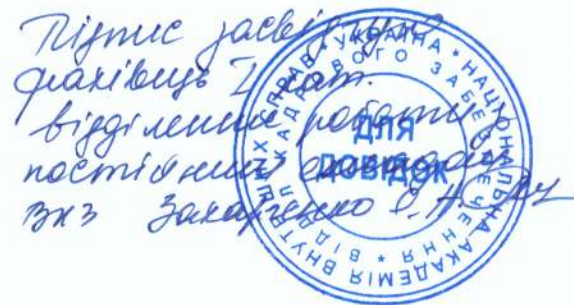 Підпис засвідчую
фахівець І кат.
відділення роботи з
постійним складом
ВКЗ Захарченко
УКРАЇНА * НАЦІОНАЛЬНА АКАДЕМІЯ ВНУТРІШНІХ СПРАВ *
ВІДДІЛ КАДРОВОГО ЗАБЕЗПЕЧЕННЯ *
ДЛЯ
ДОВІДОК